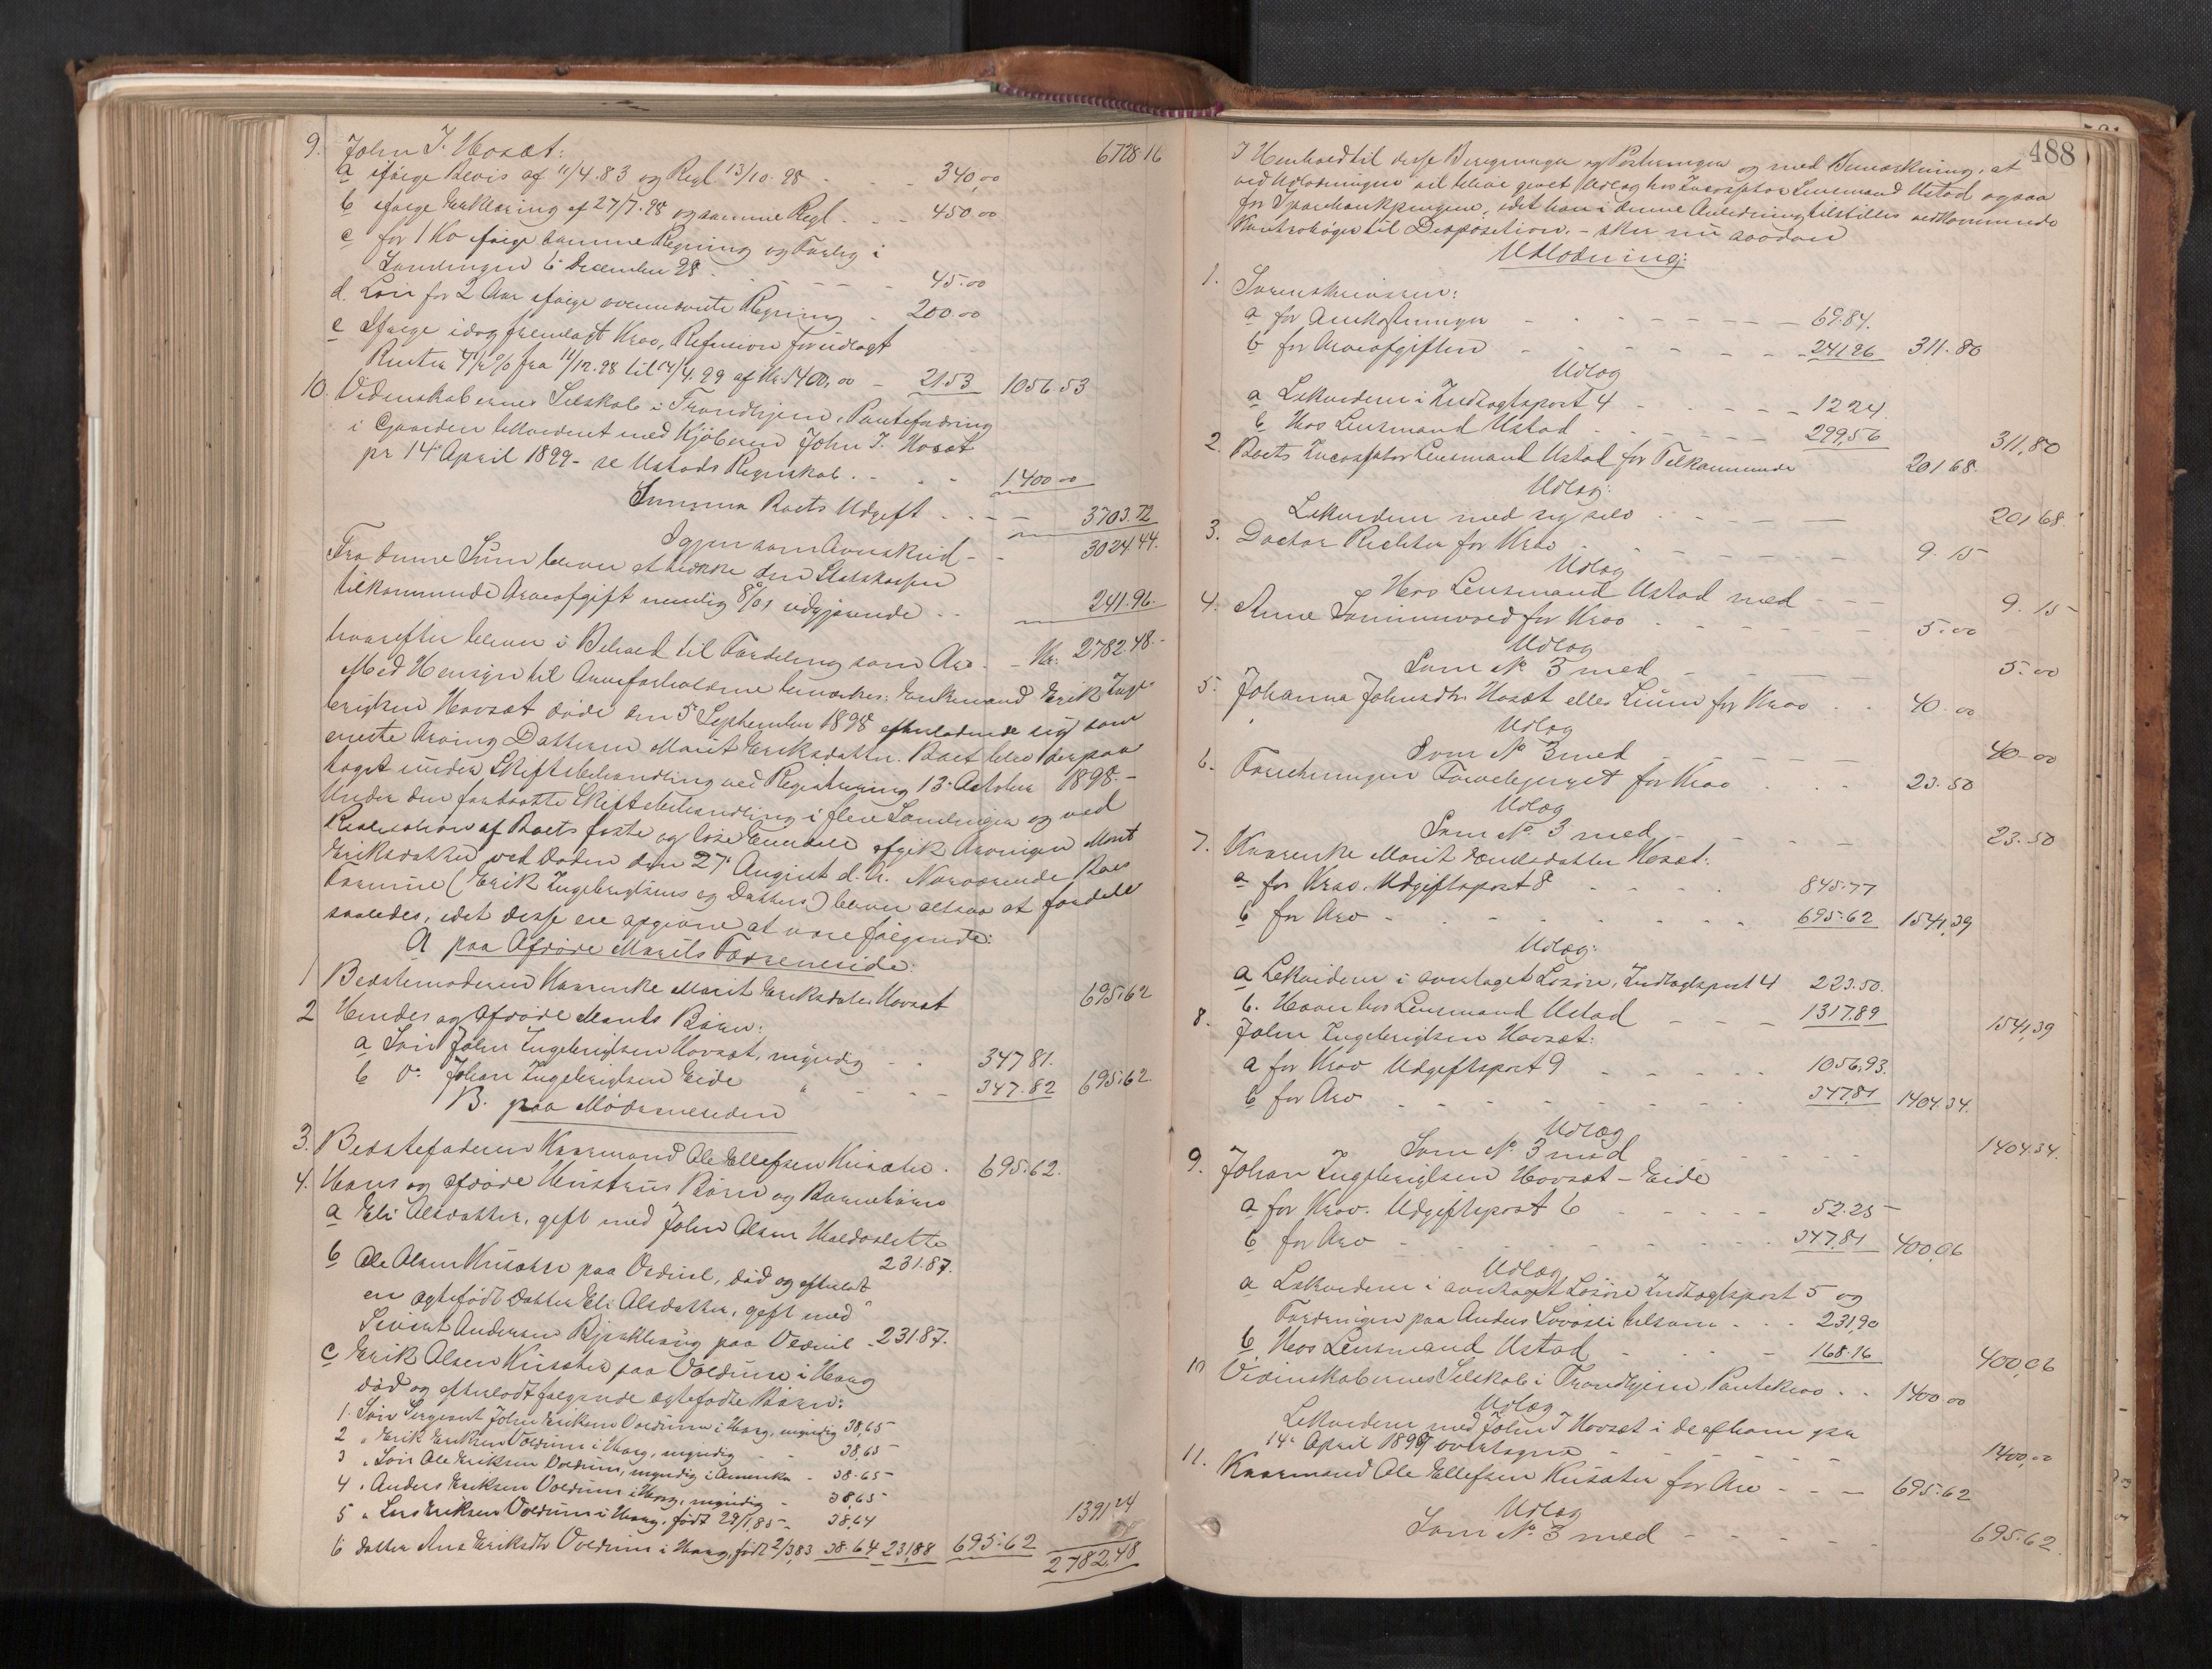 9. John I. Hosæt: 6728 16
a ifølge Bevis af 11/4.83 og Regl 13/10.98 - - - 340,00
b ifølge Erklæring af 27/7.98 og samme Regl. - - 450.00
c for 1 Ko ifølge samme Regning og Forlig i
Samlingen 6 December 98. - - - - 45.00
d. Løn for 2 Aar ifølge ovennævnte Regning - 200.00
e Ifølge idag fremlagt Krav, Refusion for udlagt
Renter 4 1/2 % fra 11/12.98 til 14/4.99 af Kr 1400,00 - 21.53 1056.53
10. Videnskabernes Selskab i Trondhjem, Pantefordring
i Gaarden likvideret med Kjøberen John I. Hosæt
pr 14 April 1899 - se Ustads Regnskab. - - - 1400 00
Summa Boets Udgift - - - 3703.72
Igjen som Overskud - - 3024.44.
Fra denne Sum bliver at trække den Statskassen
tilkommende Arveafgift nemlig 8% udgjørende - - 241.96.
hvorefter bliver i Behold til Fordeling som Arv. - Kr. 2782.48.-
Med Hensyn til Arveforholdene bemærkes: Enkemand Erik Inge-
brigtsen Hovsæt døde den 5 September 1898 efterladende sig som
eneste Arving Datteren Marit Eriksdatter. Boet blev derpaa
taget under Skiftebehandling ved Registrering 13 October 1898.-
Under den fortsatte Skiftebehandling i flere Samlinger og ved
Realisation af Boets faste og løse Eiendele afgik Arvingen Marit
Eriksdatter ved Døden den 27 August d. A. Nærværende Boes
Formue (Erik Ingebrigtsens og Datters) bliver altsaa at fordele
saaledes, idet disse ere opgivne at være følgende:
A paa Afdøde Marits Farsside:
1 Bedstemoderen Kaarenke Marit Eriksdatter Hovsæt 695.62
2 Hendes og Afdøde Mands Børn:
a Søn John Ingebrigtsen Hovsæt, myndig - - 347 81.
b Do. Johan Ingebrigtsen Eide " - - - 347.82 695.62.
B. paa Mødreneside
3. Bedstefaderen Kaarmand Ole Ellefsen Kusæter. - 695.62.
4. Hans og afdøde Hustrus Børn og Børnebørn
a Eli Olsdatter, gift med John Olsen Haldoslette
231.87.
b Ole Olsen Kusæter paa , død og efterladt
en ægtefødt Datter Eli Olsdatter, gift med
Sivert Andersen paa - 231.87.
c Erik Olsen Kusæter paa Voldum i Horg
død og efterladt følgende ægtefødte Børn:
1. Søn Sergeant John Eriksen Voldum i Horg, myndig 38,65
2 " Erik Eriksen Voldum i Horg, myndig - 38,65
3 " Søn Ole Eriksen Voldum, myndig i Amerika - 38.65
4 " Anders Eriksen Voldum i Horg, myndig - 38,65
5 " Lars Eriksen Voldum i Horg, født 29/1,85 - 38,64 1391 24
6 Datter Ane Eriksdtr Voldum i Horg, født 2/3,83 38.64 231,88 695.62 2782,48
488
I Henhold til disse Beregninger og Posteringer og med Bemærkning, at
ved Udlodningen vil blive givet Udlæg hos Incassator Lensmand Ustad ogsaa
for Sparebankpengene, idet han i denne Anledning tilstilles vedkommende
Kontrabøger til Disposition, - sker nu saadan
Udlodning:
1. Sorenskriveren:
a for Omkostninger - - - - - - - 69.84.
b for Arveafgiften - - - - - - - 241,96 311.80
Udlæg
a Likviderer i Indtægtspost 4 - - - - 12 24.
b Hos Lensmand Ustad - - - - - - 299,56 311,80
2. Boets Incassator Lensmand Ustad for Tilkommende 201 68.
Udlæg:
Likviderer med sig selv - - - - 201,68.
3. Doctor Richter for Krav - - - - 9. 15
Udlæg
Hos Lensmand Ustad med - - - 9. 15
4. Anne for Krav - - - - - - 5.00
Udlæg
Som No 3 med - - - - - 5.00
5. Johanna Johnsdtr. Hosæt eller Lium for Krav - - 40.00
Udlæg
Som No 3 med - - - - - 40-00
6. Forretningen for Krav - - - 23.50
Udlæg
Som No. 3 med - - - - 23.50
7. Kaarenke Marit Eriksdatter Hosæt:
a for Krav. Udgiftspost 8 - - - - 845.77
b for Arv - - - - - - - - 695.62 1541,39
Udlæg:
a Likviderer i overtaget Løsøre, Indtægtspost 4 223.50.
b. Haver hos Lensmand Ustad - - - 1317.89 1541,39
8. John Ingebrigtsen Hovsæt:
a for Krav Udgiftspost 9 - - - - - 1056,93.
b for Arv - - - - - - - - 347,81 1404.34.
Udlæg
Som No 3 med - - - - - 1404.34.
9. Johan Ingebrigtsen Hovsæt - Eide
a for Krav. Udgiftspost 6 - - - - - 52.25
b for Arv - - - - - - - - 347,81 400,06
Udlæg
a Likviderer i overtaget Løsøre Indtægtspost 5 og
Fordringen paa Anders tilsam - - - 231,90
b Hos Lensmand Ustad - - - - 168.16 400,06
10 Videnskabernes Selskab i Trondhjem, Pantekrav - - 1400.00
Udlæg
Likviderer med John I Hovsæt i de af ham pr.
14 April 1899 overtagne - - - - - 1400,00
11. Kaarmand Ole Ellefsen Kusæter for Arv - - - 695.62
Udlæg
Som No. 3 med - - - - 695.62.